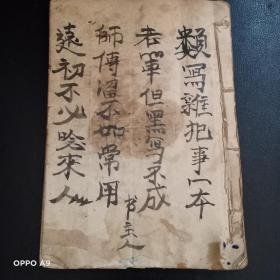 類寫雜犯事一本
老筆但黑写不成
師傅遠不如常用
書主人
遠初不必唸來人
OPPO A9